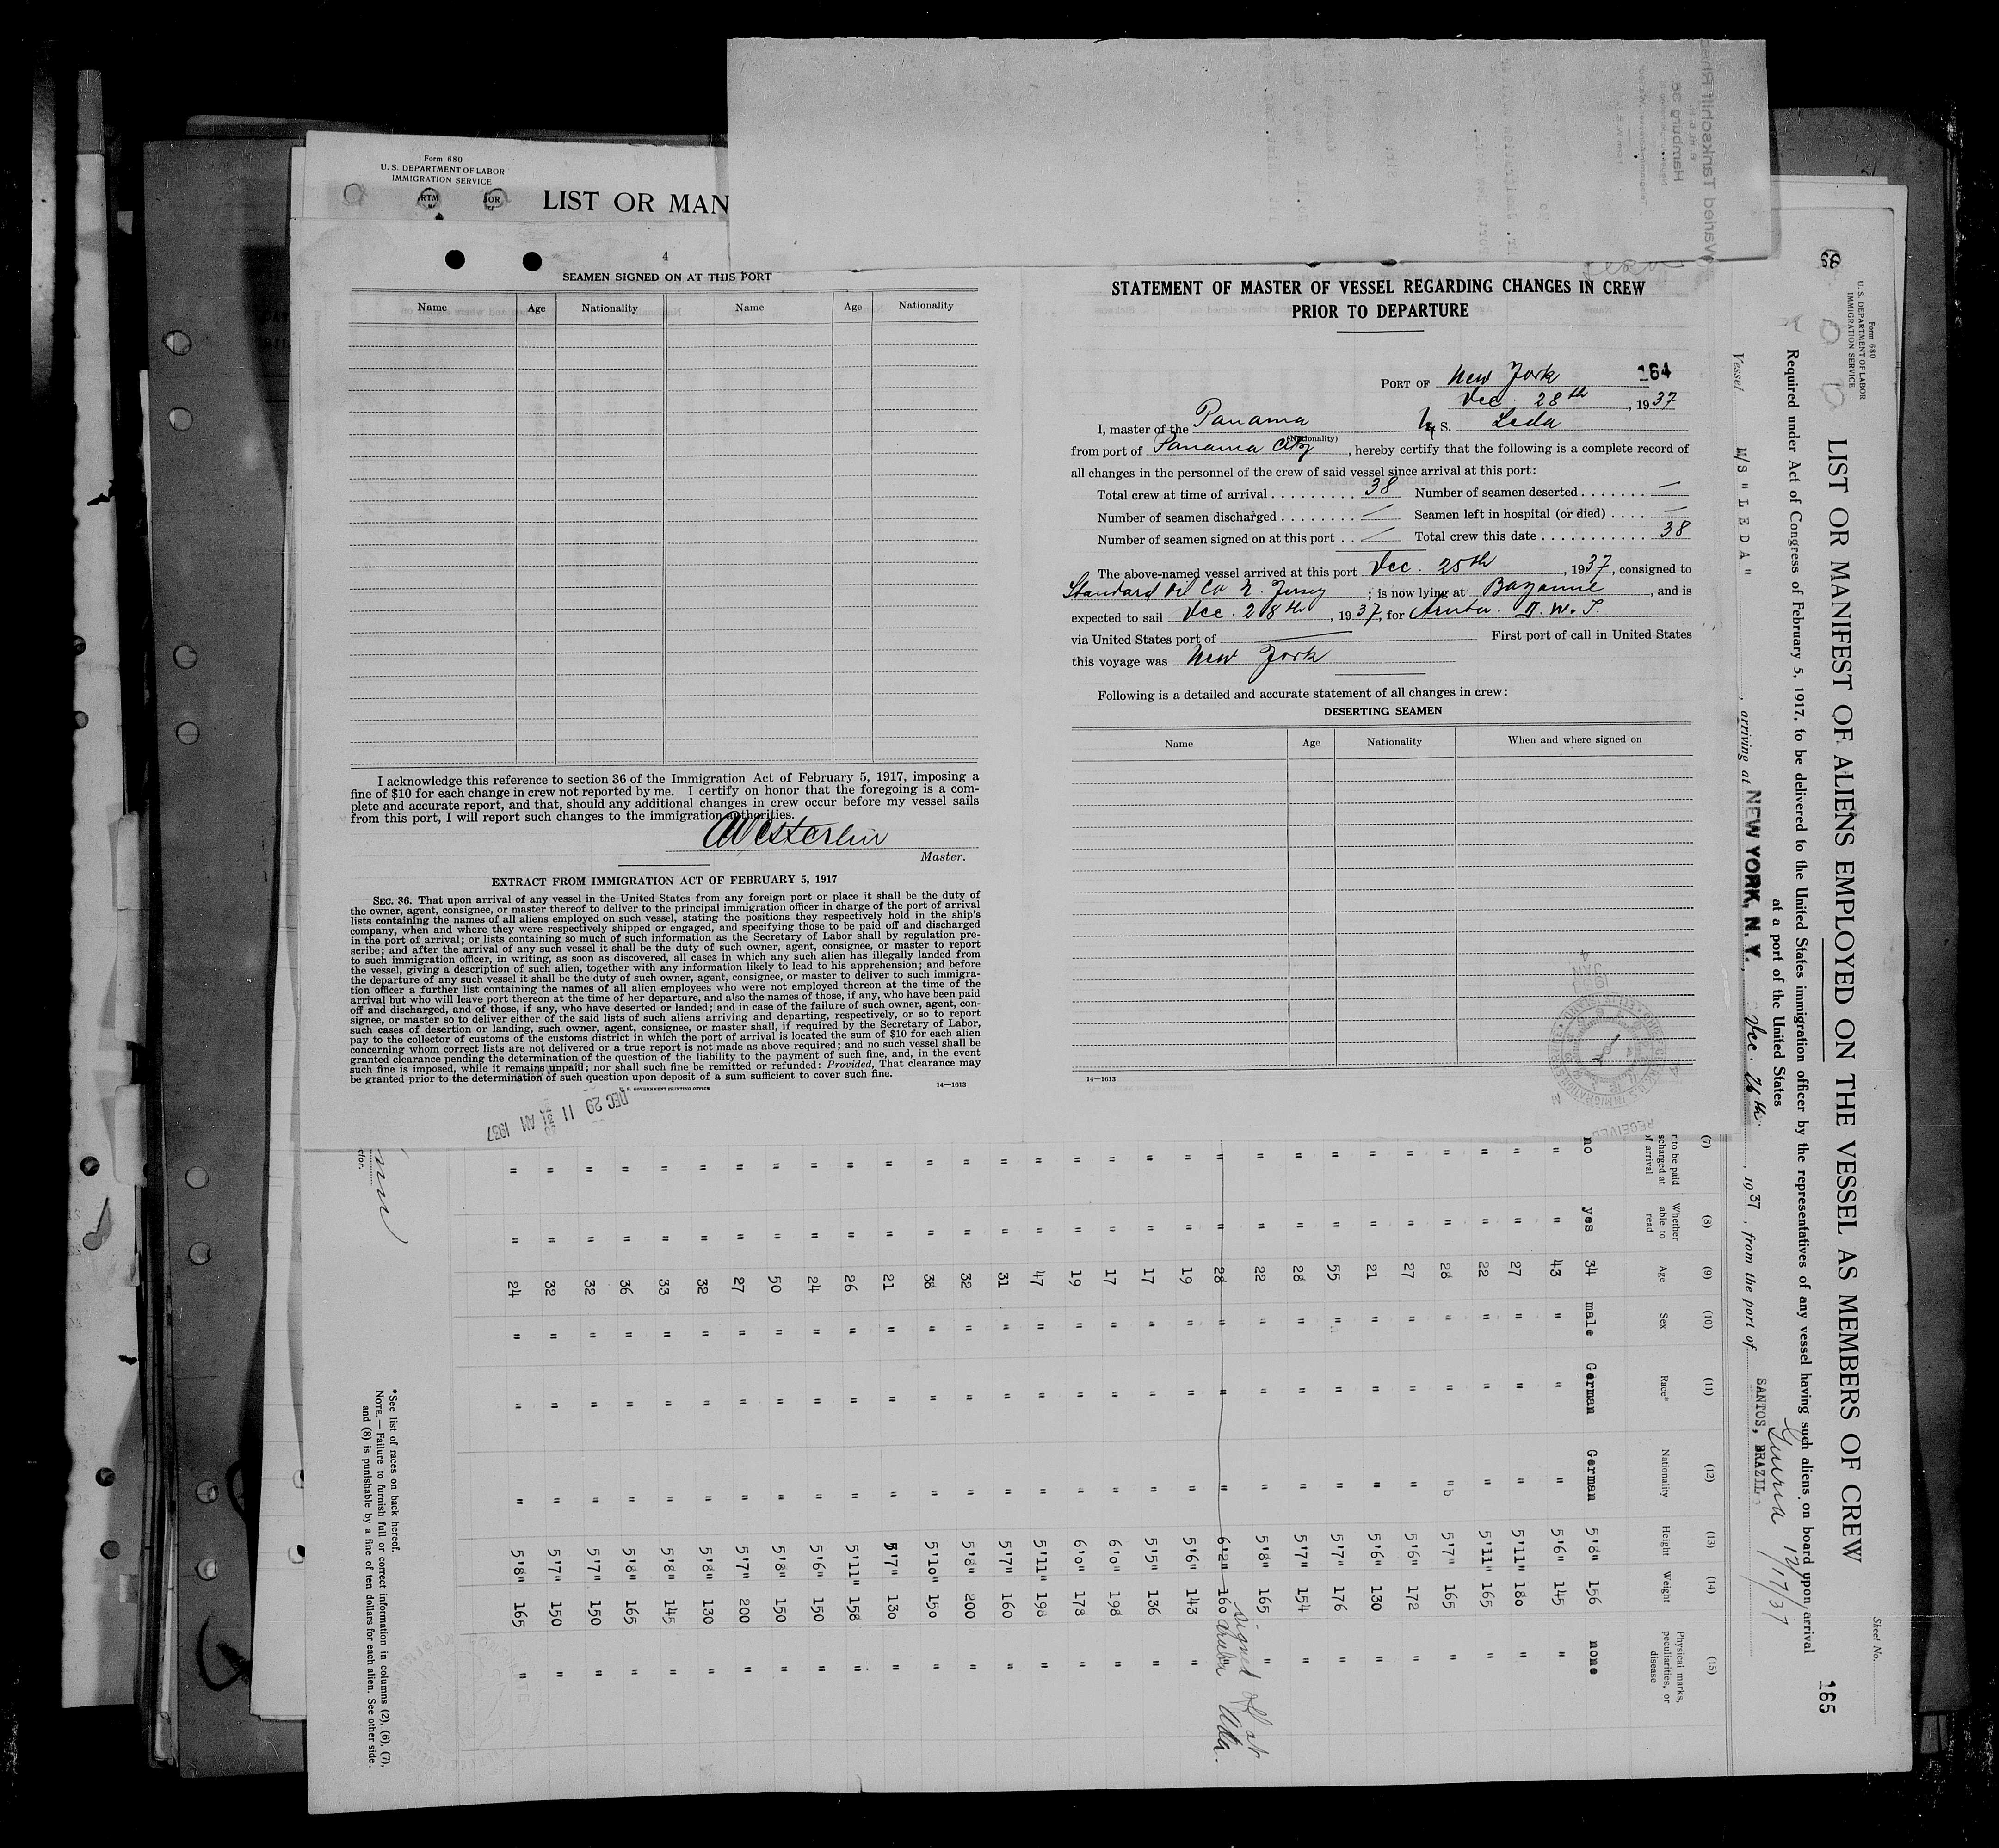 Form 680
U. S. DEPARTMENT OF LABOR
IMMIGRATION SERVICE
LIST OR MAN
4
SEAMEN SIGNED ON AT THIS PORT
Name Age Nationality Name Age Nationality
I acknowledge this reference to section 36 of the Immigration Act of February 5, 1917, imposing a
fine of $10 for each change in crew not reported by me. I certify on honor that the foregoing is a com-
plete and accurate report, and that, should any additional changes in crew occur before my vessel sails
from this port, I will report such changes to the immigration authorities.
Westerlin
Master.
EXTRACT FROM IMMIGRATION ACT OF FEBRUARY 5, 1917
SEC. 36. That upon arrival of any vessel in the United States from any foreign port or place it shall be the duty of
the owner, agent, consignee, or master thereof to deliver to the principal immigration officer in charge of the port of arrival
lists containing the names of all aliens employed on such vessel, stating the positions they respectively hold in the ship's
company, when and where they were respectively shipped or engaged, and specifying those to be paid off and discharged
in the port of arrival; or lists containing so much of such information as the Secretary of Labor shall by regulation pre-
scribe; and after the arrival of any such vessel it shall be the duty of such owner, agent, consignee, or master to report
to such immigration officer, in writing, as soon as discovered, all cases in which any such alien has illegally landed from
the vessel, giving a description of such alien, together with any information likely to lead to his apprehension; and before
the departure of any such vessel it shall be the duty of such owner, agent, consignee, or master to deliver to such immigra-
tion officer a further list containing the names of all alien employees who were not employed thereon at the time of the
arrival but who will leave port thereon at the time of her departure, and also the names of those, if any, who have been paid
off and discharged, and of those, if any, who have deserted or landed; and in case of the failure of such owner, agent, con-
signee, or master so to deliver either of the said lists of such aliens arriving and departing, respectively, or so to report
such cases of desertion or landing, such owner, agent, consignee, or master shall, if required by the Secretary of Labor,
pay to the collector of customs of the customs district in which the port of arrival is located the sum of $10 for each alien
concerning whom correct lists are not delivered or a true report is not made as above required; and no such vessel shall be
granted clearance pending the determination of the question of the liability to the payment of such fine, and, in the event
such fine is imposed, while it remains unpaid; nor shall such fine be remitted or refunded: Provided, That clearance may
be granted prior to the determination of such question upon deposit of a sum sufficient to cover such fine.
14—1613
U. S. GOVERNMENT PRINTING OFFICE
DEC 29 11 AM 1937
STATEMENT OF MASTER OF VESSEL REGARDING CHANGES IN CREW
PRIOR TO DEPARTURE
164
PORT OF New York
Dec. 28th, 1937
I, master of the Panama M S. Leda
(Nationality)
from port of Panama City, hereby certify that the following is a complete record of
all changes in the personnel of the crew of said vessel since arrival at this port:
Total crew at time of arrival 38 Number of seamen deserted —
Number of seamen discharged — Seamen left in hospital (or died) —
Number of seamen signed on at this port — Total crew this date 38
The above-named vessel arrived at this port Dec. 25th, 1937, consigned to
Standard Oil Co N. Jersey; is now lying at Bayonne, and is
expected to sail Dec. 28th, 1937, for Aruba. D. W. I.
via United States port of — First port of call in United States
this voyage was New York
Following is a detailed and accurate statement of all changes in crew:
DESERTING SEAMEN
Name Age Nationality When and where signed on
14—1613
RECEIVED
Form 680
U. S. DEPARTMENT OF LABOR
IMMIGRATION SERVICE
Sheet No.
165
LIST OR MANIFEST OF ALIENS EMPLOYED ON THE VESSEL AS MEMBERS OF CREW
Required under Act of Congress of February 5, 1917, to be delivered to the United States immigration officer by the representatives of any vessel having such aliens on board upon arrival
at a port of the United States
12/17/37
Vessel M/S "LEDA", arriving at NEW YORK, N. Y., Dec. 26th, 1937, from the port of SANTOS, BRAZIL
(7) (8) (9) (10) (11) (12) (13) (14) (15)
r to be paid
scharged at
f arrival
Whether
able to
read
Age Sex Race* Nationality Height Weight
Physical marks,
peculiarities, or
disease
no yes 34 male German German 5'8" 156 none
" " 43 " " " 5'6" 145 "
" " 27 " " " 5'11" 180 "
" " 22 " " " 5'11" 165 "
" " 28 " " " 5'7" 165 "
" " 27 " " " 5'6" 172 "
" " 21 " " " 5'6" 130 "
" " 55 " " " 5'7" 176 "
" " 28 " " " 5'7" 154 "
" " 22 " " " 5'8" 165 "
" " 28 " " " 6'2" 160 "
signed off at
aruba
" " 19 " " " 5'6" 143 "
" " 17 " " " 5'5" 136 "
" " 17 " " " 6'0" 198 "
" " 19 " " " 6'0" 178 "
" " 47 " " " 5'11" 198 "
" " 31 " " " 5'7" 160 "
" " 32 " " " 5'8" 200 "
" " 38 " " " 5'10" 150 "
" " 21 " " " 5'7" 130 "
" " 26 " " " 5'11" 158 "
" " 24 " " " 5'6" 150 "
" " 50 " " " 5'8" 150 "
" " 27 " " " 5'7" 200 "
" " 32 " " " 5'8" 130 "
" " 33 " " " 5'8" 145 "
" " 36 " " " 5'8" 165 "
" " 32 " " " 5'7" 150 "
" " 32 " " " 5'7" 150 "
" " 24 " " " 5'8" 165 "
*See list of races on back hereof.
NOTE.—Failure to furnish full or correct information in columns (2), (6), (7),
and (8) is punishable by a fine of ten dollars for each alien. See other side.